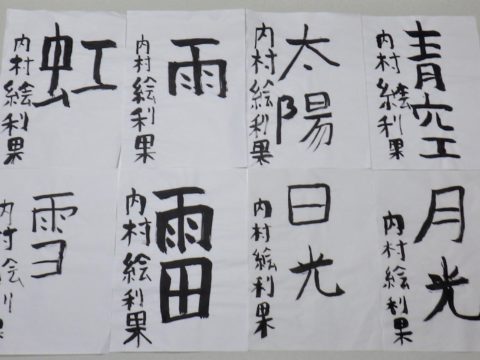 青空
内村絵利果
太陽
内村絵利果
雨
内村絵利果
虹
内村絵利果
月光
内村絵利果
日光
内村絵利果
雷
内村絵利果
雪
内村絵利果